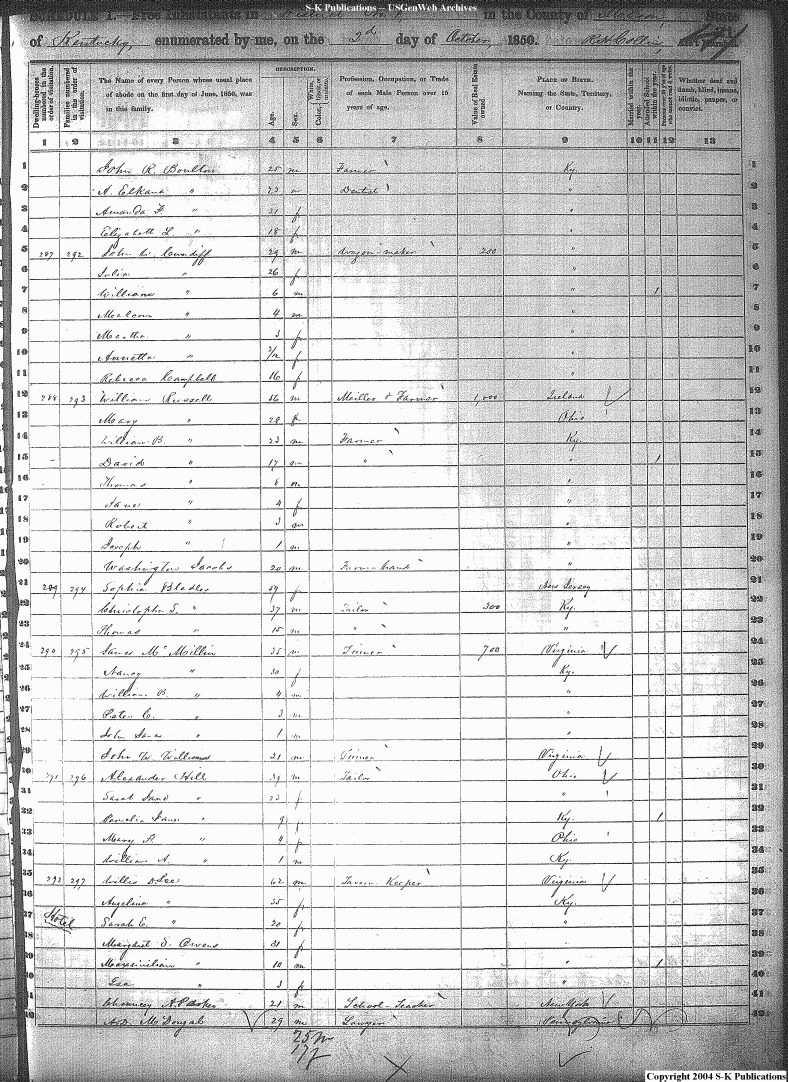 S-K Publications -- USGenWeb Archives
SCHEDULE I.—Free Inhabitants in in the County of State
of Kentucky, enumerated by me, on the 2d day of October, 1850.
Dwelling-houses numbered in the order of visitation.
Families numbered in the order of visitation.
The Name of every Person whose usual place of abode on the first day of June, 1850, was in this family.
DESCRIPTION.
Age.
Sex.
White, black, or mulatto.
Color
Profession, Occupation, or Trade of each Male Person over 15 years of age.
Value of Real Estate owned.
PLACE OF BIRTH. Naming the State, Territory, or Country.
Married within the year.
Attended School within the year.
Whether deaf and dumb, blind, insane, idiotic, pauper, or convict.
1 2 3 4 5 6 7 8 9 10 11 12 13
1 John R. Boulton 25 m Farmer Ky. 1
2 A. Elkana " 23 m Dentist " 2
3 Amanda F. " 21 f " 3
4 Elizabeth L. " 18 f " 4
5 287 292 John W. Cundiff 29 m Wagon-maker 200 " 5
6 Julia " 26 f " 6
7 William " 6 m " 1 7
8 Malcom " 4 m " 8
9 Martha " 3 f " 9
10 Annetta " /12 f " 10
11 Rebecca Campbell 16 f " 11
12 288 293 William Russell 56 m Miller & Farmer 1,000 Ireland 12
13 Mary " 28 f Ohio 13
14 William B. " 23 m Farmer Ky. 14
15 David " 17 m " " 1 15
16 Thomas " 8 m " 16
17 Jane " 4 f " 17
18 Robert " 3 m " 18
19 Joseph " 1 m " 19
20 Washington Jacobs 20 m Farm-hand " 20
21 289 294 Sophia Bladler 59 f New Jersey 21
22 Christopher S. " 37 m Tailor 300 Ky. 22
23 Thomas " 15 m " " 23
24 290 295 James McMillin 35 m Tinner 700 Virginia 24
25 Nancy " 30 f Ky. 25
26 William B. " 4 m " 26
27 Peter C. " 3 m " 27
28 John James " 1 m " 28
29 John W. Williams 21 m Tinner Virginia 29
30 291 296 Alexander Hill 39 m Tailor Ohio 30
31 Sarah Jane " 23 f " 31
32 Pamelia Jane " 9 f Ky. 1 32
33 Mary A. " 4 f Ohio 33
34 William A. " 1 m Ky. 34
35 292 297 Willis D. Lee 62 m Tavern Keeper Virginia 35
36 Angelina " 35 f Ky. 36
37 Hotel Sarah E. " 20 f " 37
38 Margaret S. Owens 31 f 38
39 Maximilian " 10 m " 1 39
40 Iza " 3 f " 40
41 Chauncey A. Parker 21 m School-Teacher New York 41
42 A.D. McDougal 29 m Lawyer Pennsylvania 42
25 m
17 f
Copyright 2004 S-K Publications